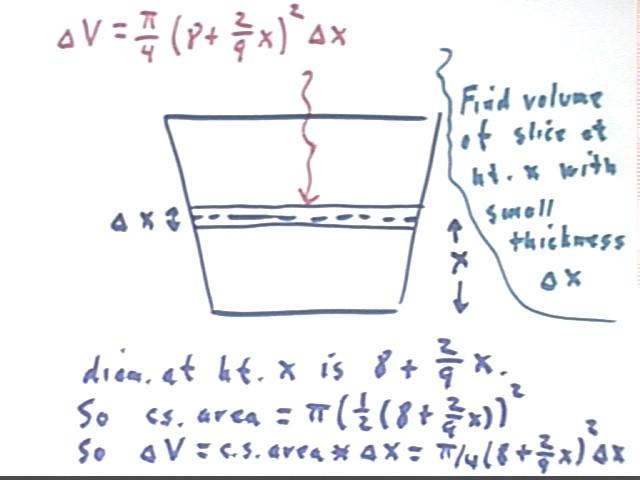 ΔV = π/4 (8 + 2/9 x)² Δx
Find volume
of slice at
ht. x with
small
thickness
Δx
Δx
x
diam. at ht. x is 8 + 2/9 x.
So cs. area = π(1/2(8 + 2/9 x))²
So ΔV = c.s. area * Δx = π/4(8 + 2/9 x)² Δx